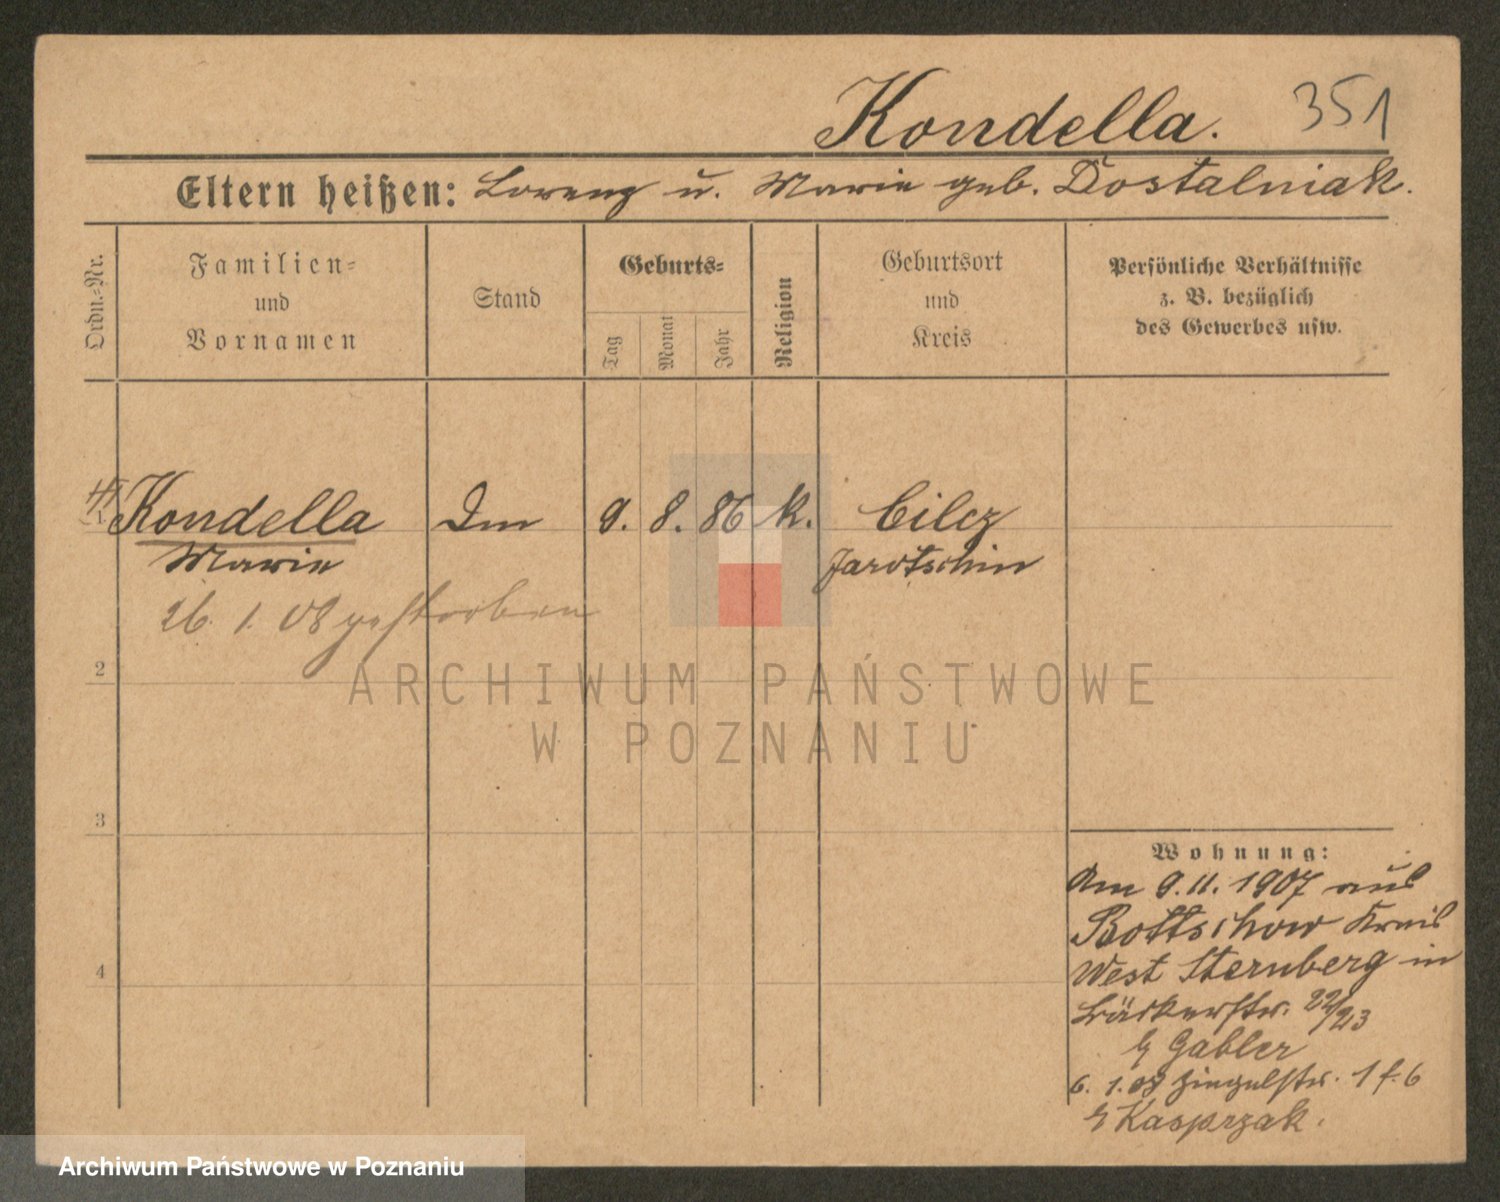 Kondella. 351
Eltern heißen: Lorenz u. Marie geb. Dostalniak.
Ordn.-Nr.
Familien-
und
Vornamen
Stand
Geburts-
Tag
Monat
Jahr
Religion
Geburtsort
und
Kreis
Persönliche Verhältnisse
z. B. bezüglich
des Gewerbes usw.
Kondella 9. 8. 86 k. Cilcz
Marie Jarotschin
26. 1. 08 gestorben
2
3
4
ARCHIWUM PAŃSTWOWE
W POZNANIU
Wohnung:
Am 9. 11. 1907 aus
Bottschow Kreis
West Sternberg in
Bäckerstr. 22/23
b/ Gabler
6. 1. 08 Ziegelstr. 1 f. 6
b/ Kasprzak.
Archiwum Państwowe w Poznaniu